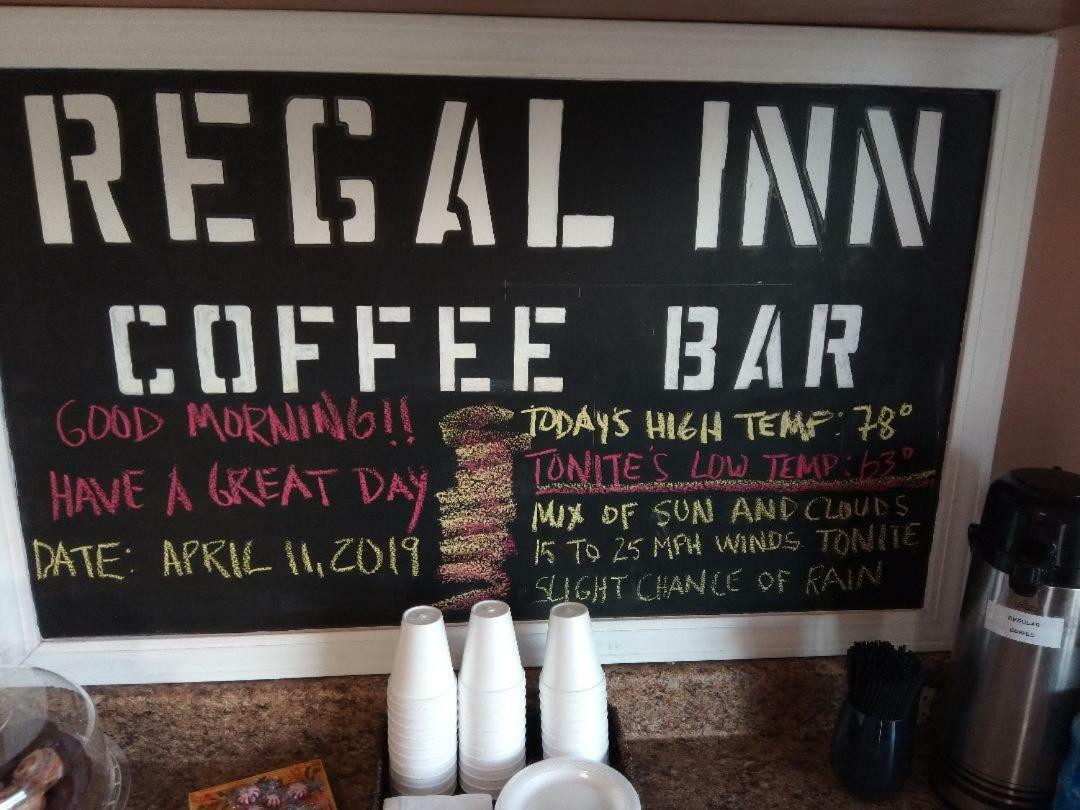 REGAL INN
COFFEE BAR
GOOD MORNING!!
HAVE A GREAT DAY
DATE: APRIL 11, 2019
TODAY'S HIGH TEMP: 78°
TONITE'S LOW TEMP: 63°
MIX OF SUN AND CLOUDS
15 TO 25 MPH WINDS TONITE
SLIGHT CHANCE OF RAIN
REGULAR
COFFEE